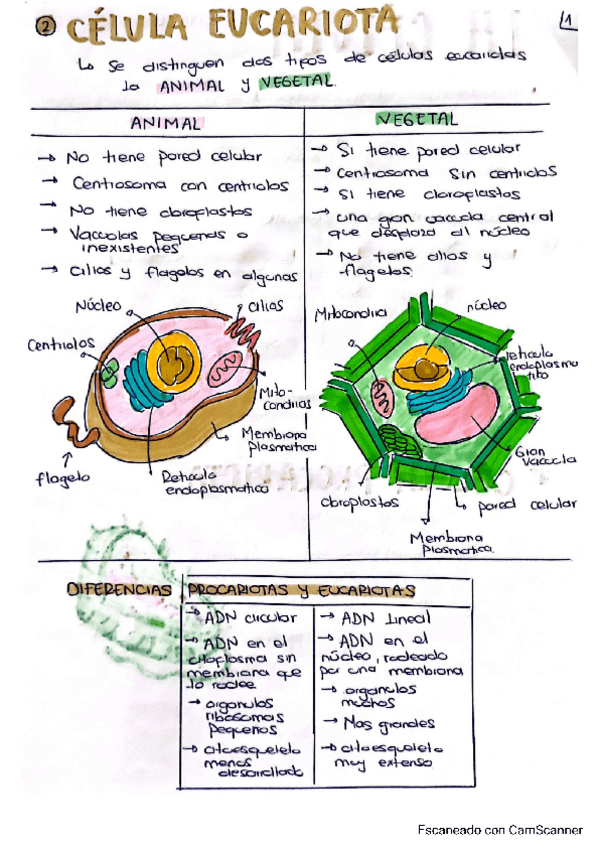 2 CÉLULA EUCARIOTA
1
↳ Se distinguen dos tipos de células eucariotas
la ANIMAL y VEGETAL.
ANIMAL
→ No tiene pared celular
→ Centrosoma con centriolos
→ No tiene cloroplastos
→ Vacuolas pequeñas o
inexistentes
→ Cilios y flagelos en algunas
VEGETAL
→ Si tiene pared celular
→ Centrosoma sin centriolos
→ Si tiene cloroplastos
→ una gran vacuola central
que desplaza al núcleo
→ No tiene cilios y
flagelos.
Núcleo
cilios
Centriolos
Mito-
condrias
Membrana
plasmática
flagelo
Retículo
endoplasmatico
Mitocondria
núcleo
retículo
endoplasmá
tico
Gran
vacuola
cloroplastos
pared celular
Membrana
Plasmatica
DIFERENCIAS PROCARIOTAS Y EUCARIOTAS
→ ADN circular
→ ADN en el
citoplasma sin
membrana que
lo rodee
→ organulos
ribosomas
pequeños
→ citoesqueleto
menos
desarrollado
→ ADN Lineal
→ ADN en el
núcleo, rodeado
por una membrana
→ organulos
muchos
→ Mas grandes
→ citoesqueleto
muy extenso
Escaneado con CamScanner